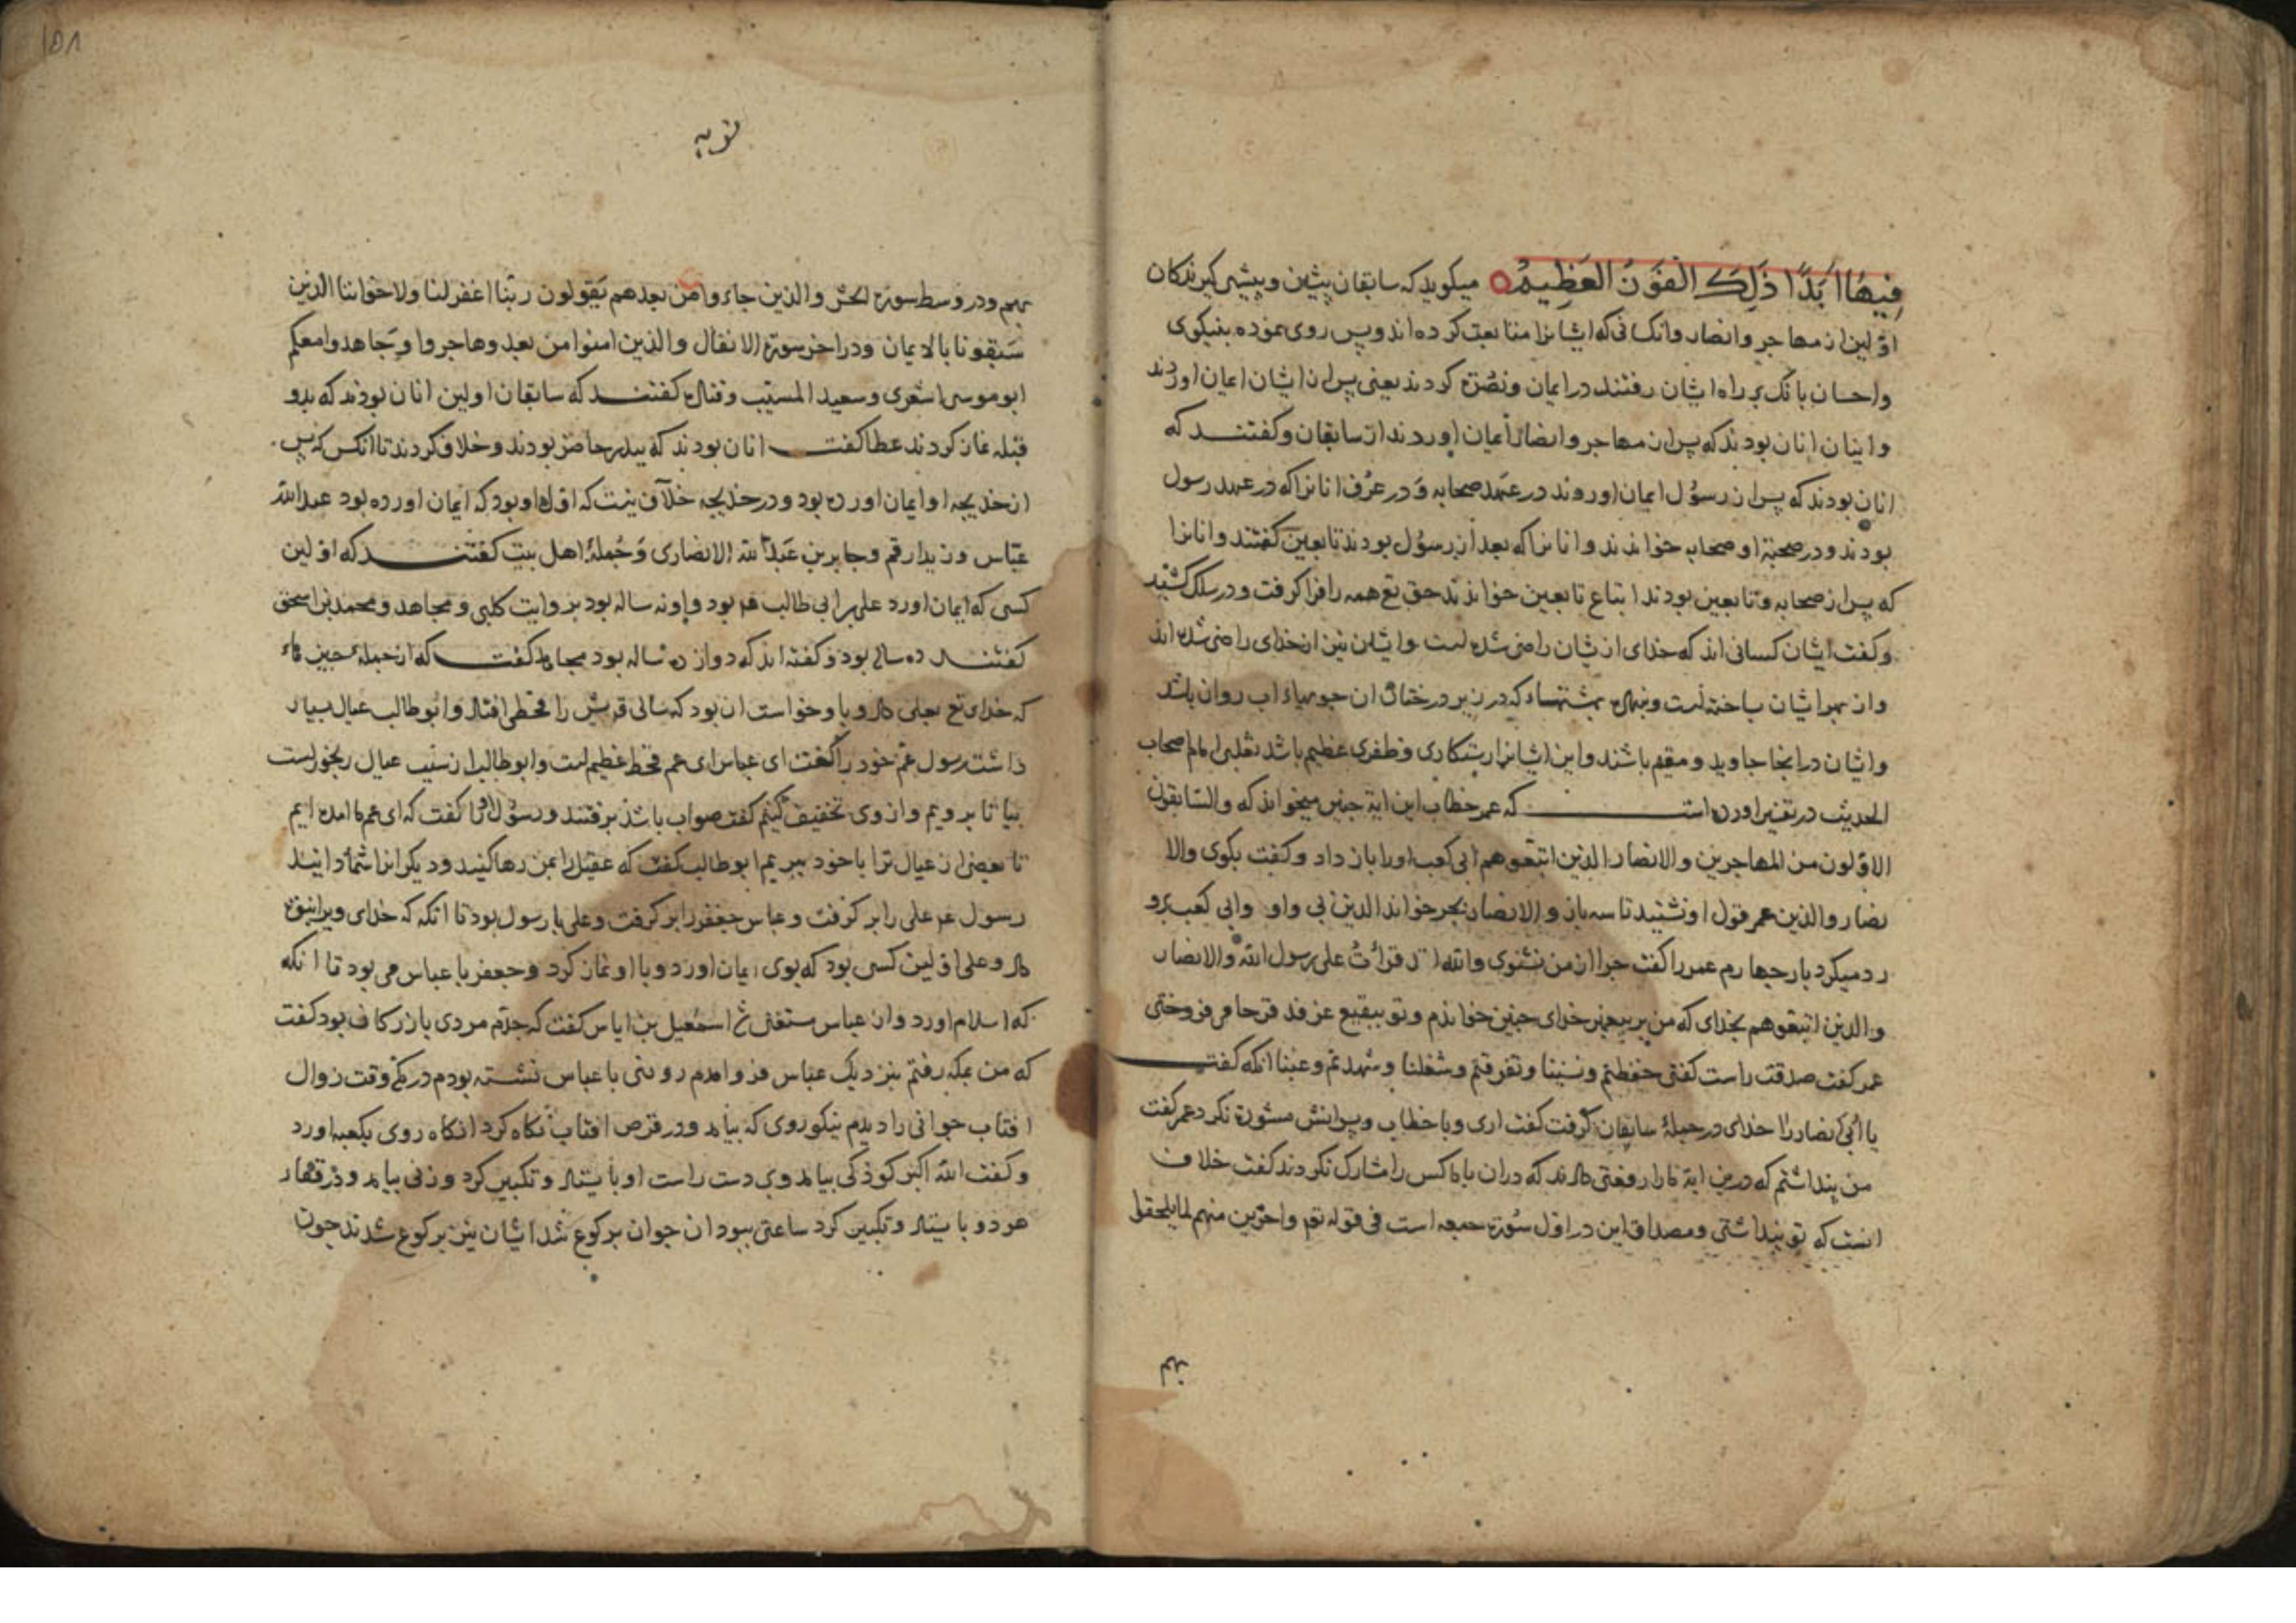 فِيهَا اَبَدًا ذَلِكَ الْفَوْزُ الْعَظِيمُ میکوید که سابقان پیشین و پیشی کیرندکان
اولین از مهاجر و انصار و انکسانی که ایشانرا متابعت کرده اند و پس روی نموده بنیکوی
و احسان بانک بر راه ایشان رفتند در ایمان و نصرة کردند یعنی پس از ایشان ایمان اوردند
و اینان انان بودند که پس از مهاجر و انصار ایمان اوردند از سابقان و کفتند که
انان بودند که پس از رسول ایمان اوردند در عهد صحابه و در عرف انانرا که در عهد رسول
بودند و در صحبة او صحابه خواندند و انانرا که بعد از رسول بودند تابعین کفتند و انانرا
که پس از صحابه و تابعین بودند اتباع تابعین خواندند حق تع همه را فرا کرفت و در سلک کشید
و کفت ایشان کسانی اند که خدای از ایشان راضی شده است و ایشان نیز از خدای راضی شده اند
و از بهر ایشان ساخته است و نهاده بهشتهاء که در زیر درختان ان جویهاء اب روان باشد
و ایشان در انجا جاوید و مقیم باشند و این ایشانرا رستکاری و ظفری عظیم باشد ثعلبی امام اصحاب
الحدیث در تفسیر اورده است که عمر خطاب این ایة جنین میخواند که والسابقون
الاولون من المهاجرین والانصار الذین اتبعوهم ابی کعب او را باز داد و کفت بکوی والا
نصار والذین عمر قول او نشنید تا سه بار و الانصار بجر خواند الذین بی واو و ابی کعب برو
رد میکرد بار جهارم عمر را کفت جرا از من نشنوی والله لقد قرأتُ علی رسول الله والانصار
والذین اتبعوهم بخدای که من بر پیغمبر خدای جنین خواندم و تو ببقیع غرقد قرحا می فروختی
عمر کفت صدقت راست کفتی حفظتم و نسینا و تفرغتم و شغلنا و شهدتم و غبنا انکه کفت
یا ابی انصار را خدای در جملۀ سابقان کرفت کفت اری و با خطاب و پسرانش مشورة نکرد عمر کفت
من پنداشتم که درین ایة مارا رفعتی دادند که دران با ما کس را مشارک نکردند کفت خلاف
انست که تو پنداشتی و مصداق این در اول سورة جمعه است فی قوله تع واخرین منهم لما یلحقوا
بهم
توبه
بهم و در وسط سورة الحشر والذین جاءوا من بعدهم یَقولون ربنا اغفر لنا ولاخواننا الذین
سَبقونا بالایمان و در اخر سورة الانفال والذین امنوا من بعد وهاجروا وجَاهدوا معکم
ابو موسی اشعری و سعید المسیب و قتاده کفتند که سابقان اولین انان بودند که بدو
قبله نماز کردند عطا کفت انان بودند که ببدر حاضر بودند و خلاف کردند تا انکس که پس
از خدیجه او ایمان اورده بود و در خدیجه خلاف نیست که اول او بود که ایمان اورده بود عبدالله
عباس و زید ارقم و جابر بن عبدالله الانصاری و جُملۀ اهل بیت کفتند که اولین
کسی که ایمان اورد علی بن ابی طالب بود و او نه ساله بود بروایت کلبی و مجاهد و محمد بن اسحق
کفتند ده ساله بود و کفته اند که دوازده ساله بود مجاهد کفت که از جملۀ جیزهاء
که خدای تع بعلی داد و با او خواست ان بود که سالی قریش را قحطی افتاد و ابو طالب عیال بسیار
داشت رسول عم خود را کفت ای عباس ای عم قحط عظیم است و ابو طالب از سبب عیال رنجور است
بیا تا برویم و از وی تخفیف کنیم کفت صواب باشد برفتند و رسول او را کفت که ای عم ما امده ایم
تا بعضی از عیال ترا با خود ببریم ابو طالب کفت که عقیل را بمن رها کنید و دیکرانرا شما دانید
رسول عم علی را بر کرفت و عباس جعفر را بر کرفت و علی با رسول بود تا انکه که خدای ویرا نبوة
داد و علی اولین کسی بود که بوی ایمان اورد و با او نماز کرد و جعفر با عباس می بود تا انکه
که اسلام اورد و از عباس مستغنی شد اسمعیل بن ایاس کفت که جدم مردی بازرکان بود کفت
که من بمکه رفتم بنزدیک عباس فرو امدم روزی با عباس نشسته بودم در مکه وقت زوال
افتاب جوانی را دیدم نیکو روی که بیامد و در قرص افتاب نکاه کرد انکاه روی بکعبه اورد
و کفت الله اکبر کوذکی بیامد و بر دست راست او بایستاد و تکبیر کرد و زنی بیامد و در قفاء
هر دو بایستاد و تکبیر کرد ساعتی ببود ان جوان برکوع شد ایشان نیز برکوع شدند جون